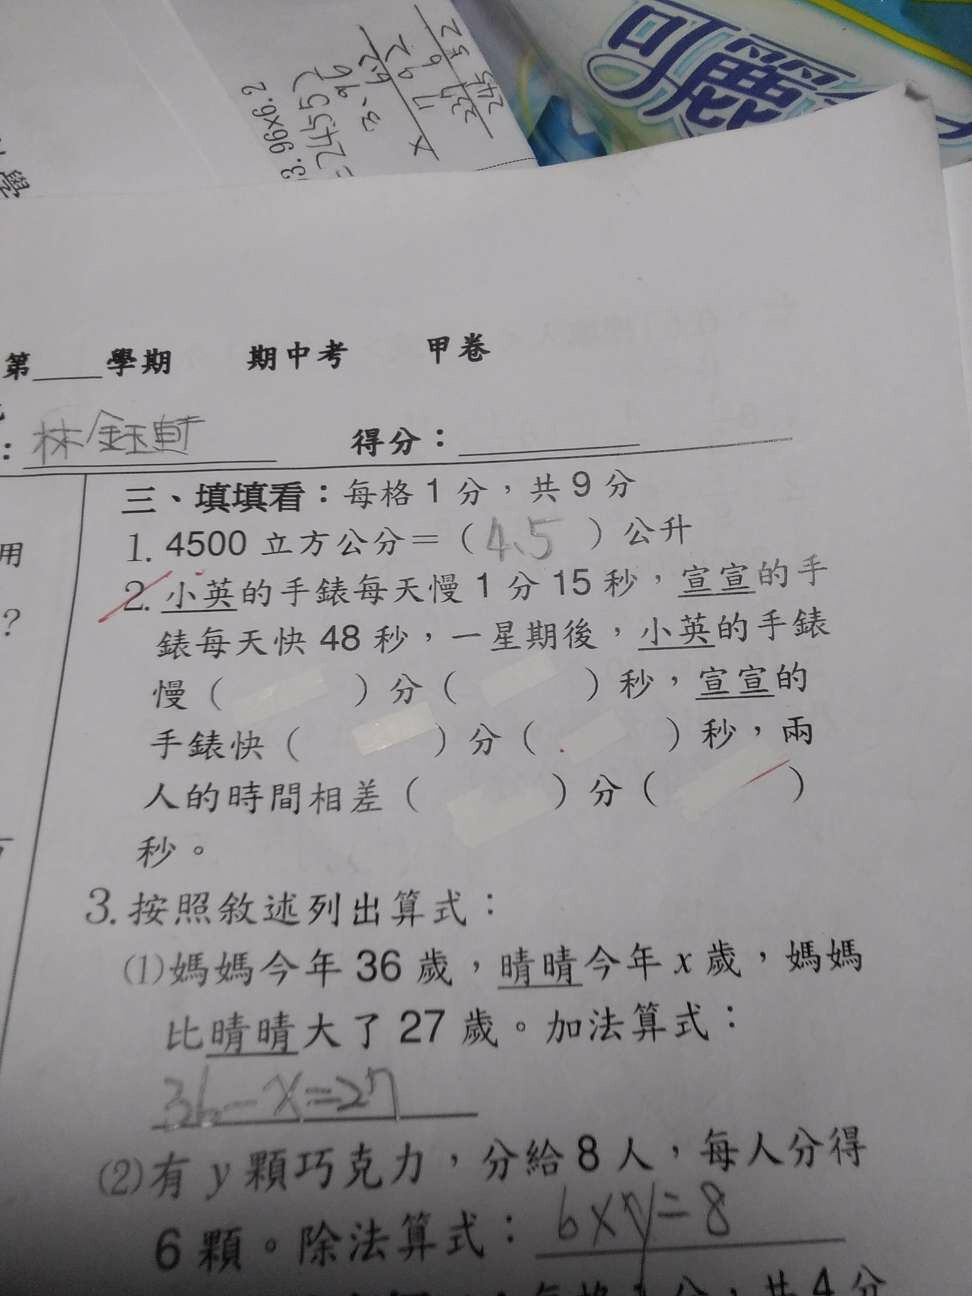 可麗
245
=2455
3. 96×6.2
學
第____學期 期中考 甲卷
: 林鈺軒 得分:
三、填填看:每格1分,共9分
1. 4500 立方公分=( 4.5 )公升
2. 小英的手錶每天慢1分15秒,宣宣的手
錶每天快48秒,一星期後,小英的手錶
慢( )分( )秒,宣宣的
手錶快( )分( )秒,兩
人的時間相差( )分( )
秒。
3. 按照敘述列出算式:
⑴媽媽今年36歲,晴晴今年x歲,媽媽
比晴晴大了27歲。加法算式:
36-x=27
⑵有y顆巧克力,分給8人,每人分得
6顆。除法算式: 6×y=8
每格1分,共4分
用
?